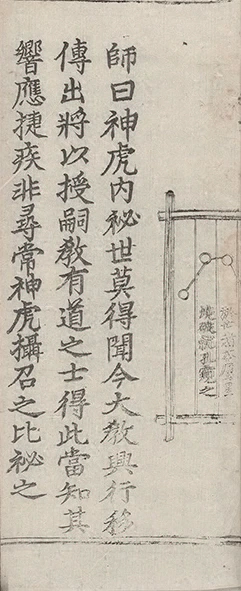 燒破從孔窺之
師曰神虎内祕世莫得聞今大教興行移
傳出將以授嗣教有道之士得此當知其
響應捷疾非尋常神虎攝召之比祕之